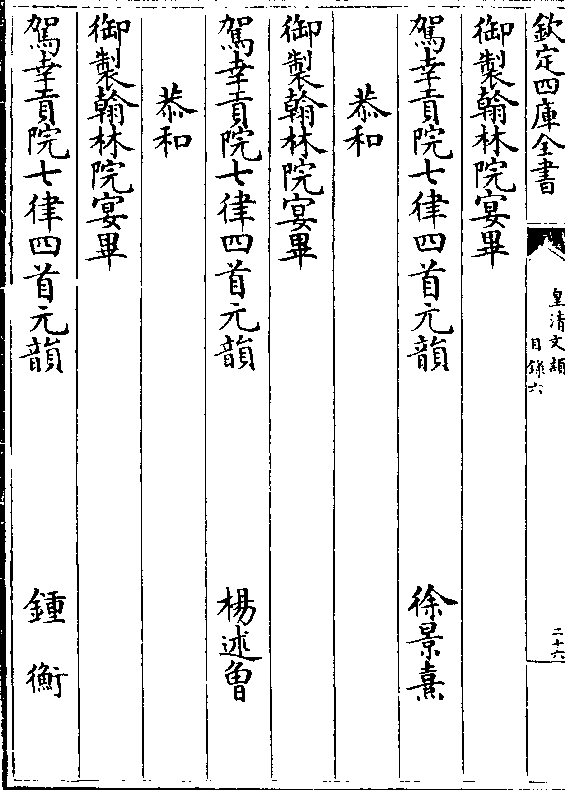 欽定四庫全書
皇清文穎
目錄六
二十六
御製翰林院宴畢
駕幸貢院七律四首元韻 徐景熹
恭和
御製翰林院宴畢
駕幸貢院七律四首元韻 楊述曾
恭和
御製翰林院宴畢
駕幸貢院七律四首元韻 鍾衡